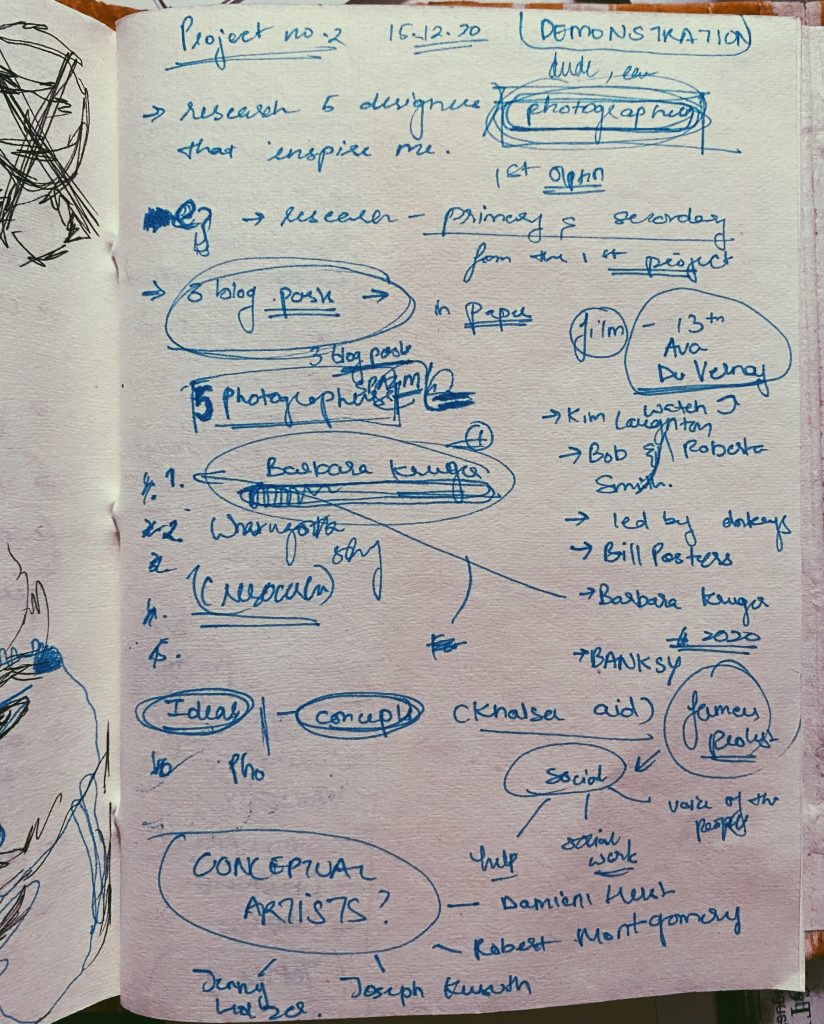 Project no.2 15.12.20 DEMONSTRATION
→ research 5 designers photography
that inspire me.
1st option
→ research - primary & secondary
from the 1st project
→ 3 blog posts → in paper
film - 13th
Ava
Du Vernay
3 blog posts
5 photographers
watch
→ Kim Laughton
→ Bob & Roberta
Smith.
1. Barbara Kruger
2
(research)
4.
5.
→ led by donkeys
→ Bill Posters
→ Barbara Kruger
2020
→ BANKSY
Ideas - concepts (Khalsa aid) farmers
protest
Pho
social
help
social
work
voice of the
people
CONCEPTUAL
ARTISTS?
- Damien Hirst
- Robert Montgomery
Jenny
Holzer.
Joseph Kosuth